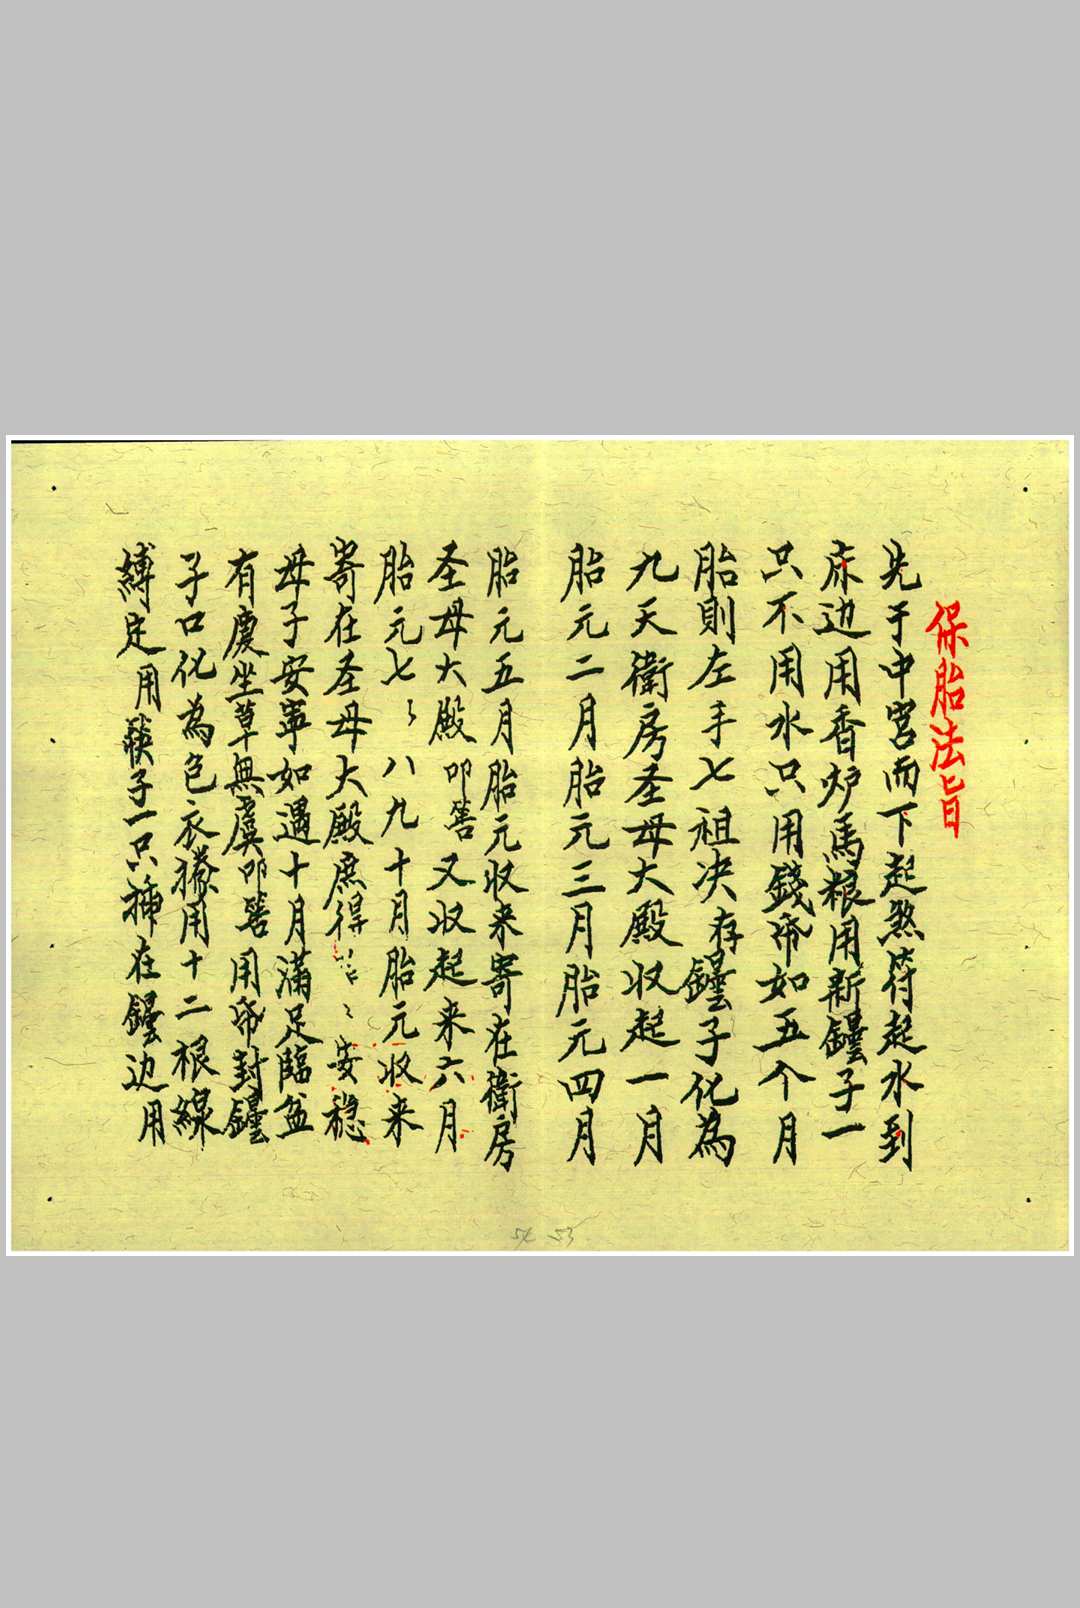 保胎法旨
先于中宮而下起煞符起水到
床边用香炉馬粮用新鑼子一
只不用水只用錢帋如五个月
胎則左手七祖决存鑼子化為
九天衛房圣母大殿收起一月
胎元二月胎元三月胎元四月
胎元五月胎元收来寄在衛房
圣母大殿叩筶又收起来六月
胎元七〻八九十月胎元收来
寄在圣母大殿庶得〻安穏
母子安寧如遇十月滿足臨盆
有慶坐草無虞叩筶用帋封
子口化為色衣用十二根線
縛定用子一只插在边用
54 53